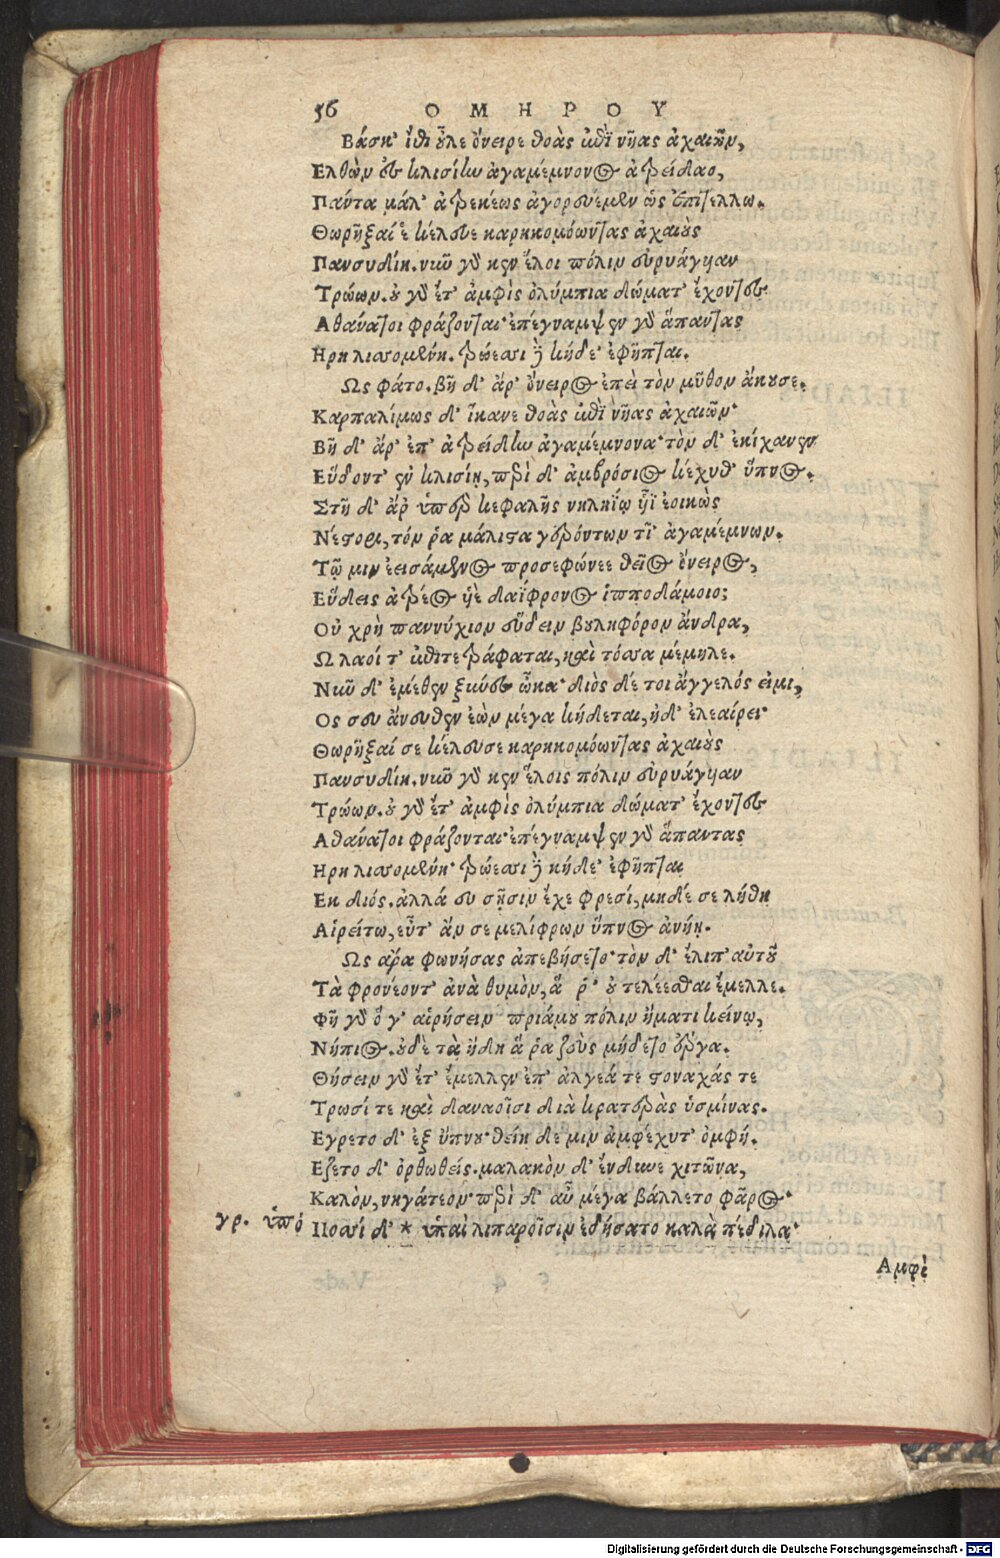 56 ΟΜΗΡΟΥ
Βάσκ' ἴθι οὖλε ὄνειρε θοὰς ἐπὶ νῆας ἀχαιῶν,
Ελθὼν ἐς κλισίην ἀγαμέμνονος ἀτρείδαο,
Πάντα μάλ' ἀτρεκέως ἀγορευέμεν ὡς ἐπιτέλλω.
Θωρῆξαί ἑ κέλευε καρηκομόωντας ἀχαιοὺς
Πανσυδίῃ. νῦν γάρ κεν ἕλοι πόλιν εὐρυάγυιαν
Τρώων. οὐ γὰρ ἔτ' ἀμφὶς ὀλύμπια δώματ' ἔχοντες
Αθάνατοι φράζονται· ἐπέγναμψεν γὰρ ἅπαντας
Ηρη λισσομένη. τρώεσσι δὲ κήδε' ἐφῆπται.
Ως φάτο. βῆ δ' ἄρ' ὄνειρος ἐπεὶ τὸν μῦθον ἄκουσε.
Καρπαλίμως δ' ἵκανε θοὰς ἐπὶ νῆας ἀχαιῶν·
Βῆ δ' ἄρ' ἐπ' ἀτρείδην ἀγαμέμνονα· τὸν δ' ἐκίχανεν
Εὕδοντ' ἐν κλισίῃ, περὶ δ' ἀμβρόσιος κέχυθ' ὕπνος.
Στῆ δ' ἄρ' ὑπὲρ κεφαλῆς νηληΐῳ υἷϊ ἐοικὼς
Νέστορι, τόν ῥα μάλιστα γερόντων τῖ' ἀγαμέμνων.
Τῷ μιν ἐεισάμενος προσεφώνεε θεῖος ὄνειρος,
Εὕδεις ἀτρέος υἱὲ δαΐφρονος ἱπποδάμοιο;
Οὐ χρὴ παννύχιον εὕδειν βουληφόρον ἄνδρα,
Ω λαοί τ' ἐπιτετράφαται, καὶ τόσσα μέμηλε.
Νῦν δ' ἐμέθεν ξύνες ὦκα· διὸς δέ τοι ἄγγελός εἰμι,
Ος σευ ἄνευθεν ἐὼν μέγα κήδεται, ἠδ' ἐλεαίρει·
Θωρῆξαί σε κέλευσε καρηκομόωντας ἀχαιοὺς
Πανσυδίῃ. νῦν γάρ κεν ἕλοις πόλιν εὐρυάγυιαν
Τρώων. οὐ γὰρ ἔτ' ἀμφὶς ὀλύμπια δώματ' ἔχοντες
Αθάνατοι φράζονται· ἐπέγναμψεν γὰρ ἅπαντας
Ηρη λισσομένη· τρώεσσι δὲ κήδε' ἐφῆπται
Εκ διός. ἀλλά συ σῇσιν ἔχε φρεσί, μηδέ σε λήθη
Αἱρείτω, εὖτ' ἄν σε μελίφρων ὕπνος ἀνήῃ.
Ως ἄρα φωνήσας ἀπεβήσετο· τὸν δ' ἔλιπ' αὐτοῦ
Τὰ φρονέοντ' ἀνὰ θυμὸν, ἅ ῥ' οὐ τελέεσθαι ἔμελλε.
Φῆ γὰρ ὅ γ' αἱρήσειν πριάμου πόλιν ἤματι κείνῳ,
Νήπιος. οὐδὲ τὰ ᾔδη ἅ ῥα ζεὺς μήδετο ἔργα.
Θήσειν γὰρ ἔτ' ἔμελλεν ἐπ' ἄλγεά τε στοναχάς τε
Τρωσί τε καὶ δαναοῖσι διὰ κρατερὰς ὑσμίνας.
Εγρετο δ' ἐξ ὕπνου· θείη δέ μιν ἀμφέχυτ' ὀμφή.
Εζετο δ' ὀρθωθείς. μαλακὸν δ' ἔνδυνε χιτῶνα,
Καλὸν, νηγάτεον· περὶ δ' αὖ μέγα βάλλετο φᾶρος·
γρ. ὑπὸ Ποσσὶ δ' * ὑπαὶ λιπαροῖσιν ἐδήσατο καλὰ πέδιλα·
Αμφὶ
Digitalisierung gefördert durch die Deutsche Forschungsgemeinschaft - DFG